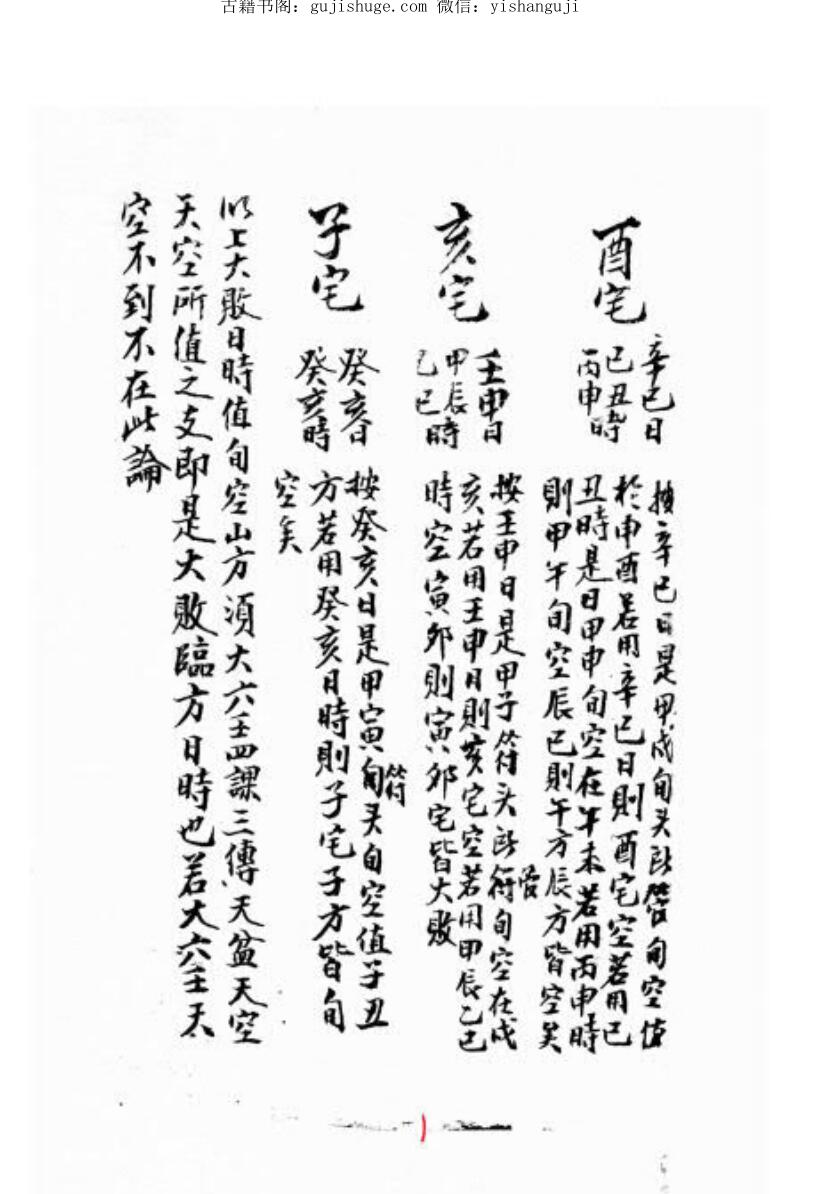 古籍书阁：gujishuge.com 微信：yishanguji
酉宅
辛巳日
己丑時
丙申時
按辛巳日是甲戌旬头所管旬空值
於申酉若用辛巳日則酉宅空若用己
丑時是日甲申旬空在午未若用丙申時
則甲午旬空辰巳則午方辰方皆空矣
亥宅
壬申日
甲辰時
乙巳時
按壬申日是甲子符头所管旬空在戌
亥若用壬申日則亥宅空若用甲辰乙巳
時空寅卯則寅卯宅皆大敗
子宅
癸亥日
癸亥時
按癸亥日是甲寅旬符头旬空值子丑
方若用癸亥日時則子宅子方皆旬
空矣
以上大敗日時值旬空山方須大六壬四課三傳天盆天空
天空所值之支即是大敗臨方日時也若大六壬天
空不到不在此論